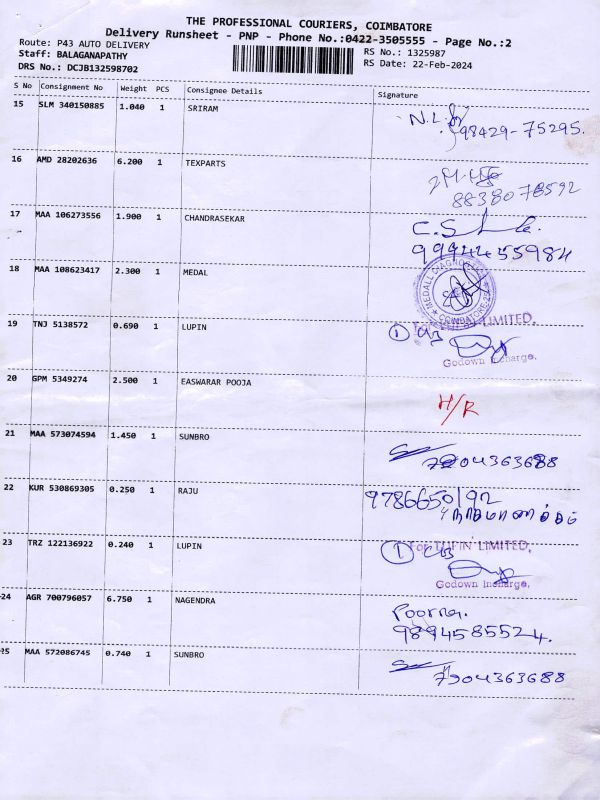 THE PROFESSIONAL COURIERS, COIMBATORE
Delivery Runsheet - PNP - Phone No.:0422-3505555 - Page No.:2
Route: P43 AUTO DELIVERY
RS No.: 1325987
Staff: BALAGANAPATHY
RS Date: 22-Feb-2024
DRS No.: DCJB132598702
S No Consignment No Weight PCS Consignee Details Signature
15 SLM 340150885 1.040 1 SRIRAM
N.L.
98429-75295.
16 AMD 28202636 6.200 1 TEXPARTS
8838078592
17 MAA 106273556 1.900 1 CHANDRASEKAR
C.S
9994455984
18 MAA 108623417 2.300 1 MEDAL
MEDALL DIAGNOSTIC
COIMBATORE
19 TNJ 5138572 0.690 1 LUPIN
For LUPIN LIMITED,
1
Godown Incharge.
20 GPM 5349274 2.500 1 EASWARAR POOJA
H/R
21 MAA 573074594 1.450 1 SUNBRO
7904363688
22 KUR 530869305 0.250 1 RAJU
9786650192
23 TRZ 122136922 0.240 1 LUPIN
For LUPIN LIMITED,
1
Godown Incharge.
24 AGR 700796057 6.750 1 NAGENDRA
Poorna.
9894585524.
25 MAA 572086745 0.740 1 SUNBRO
7904363688